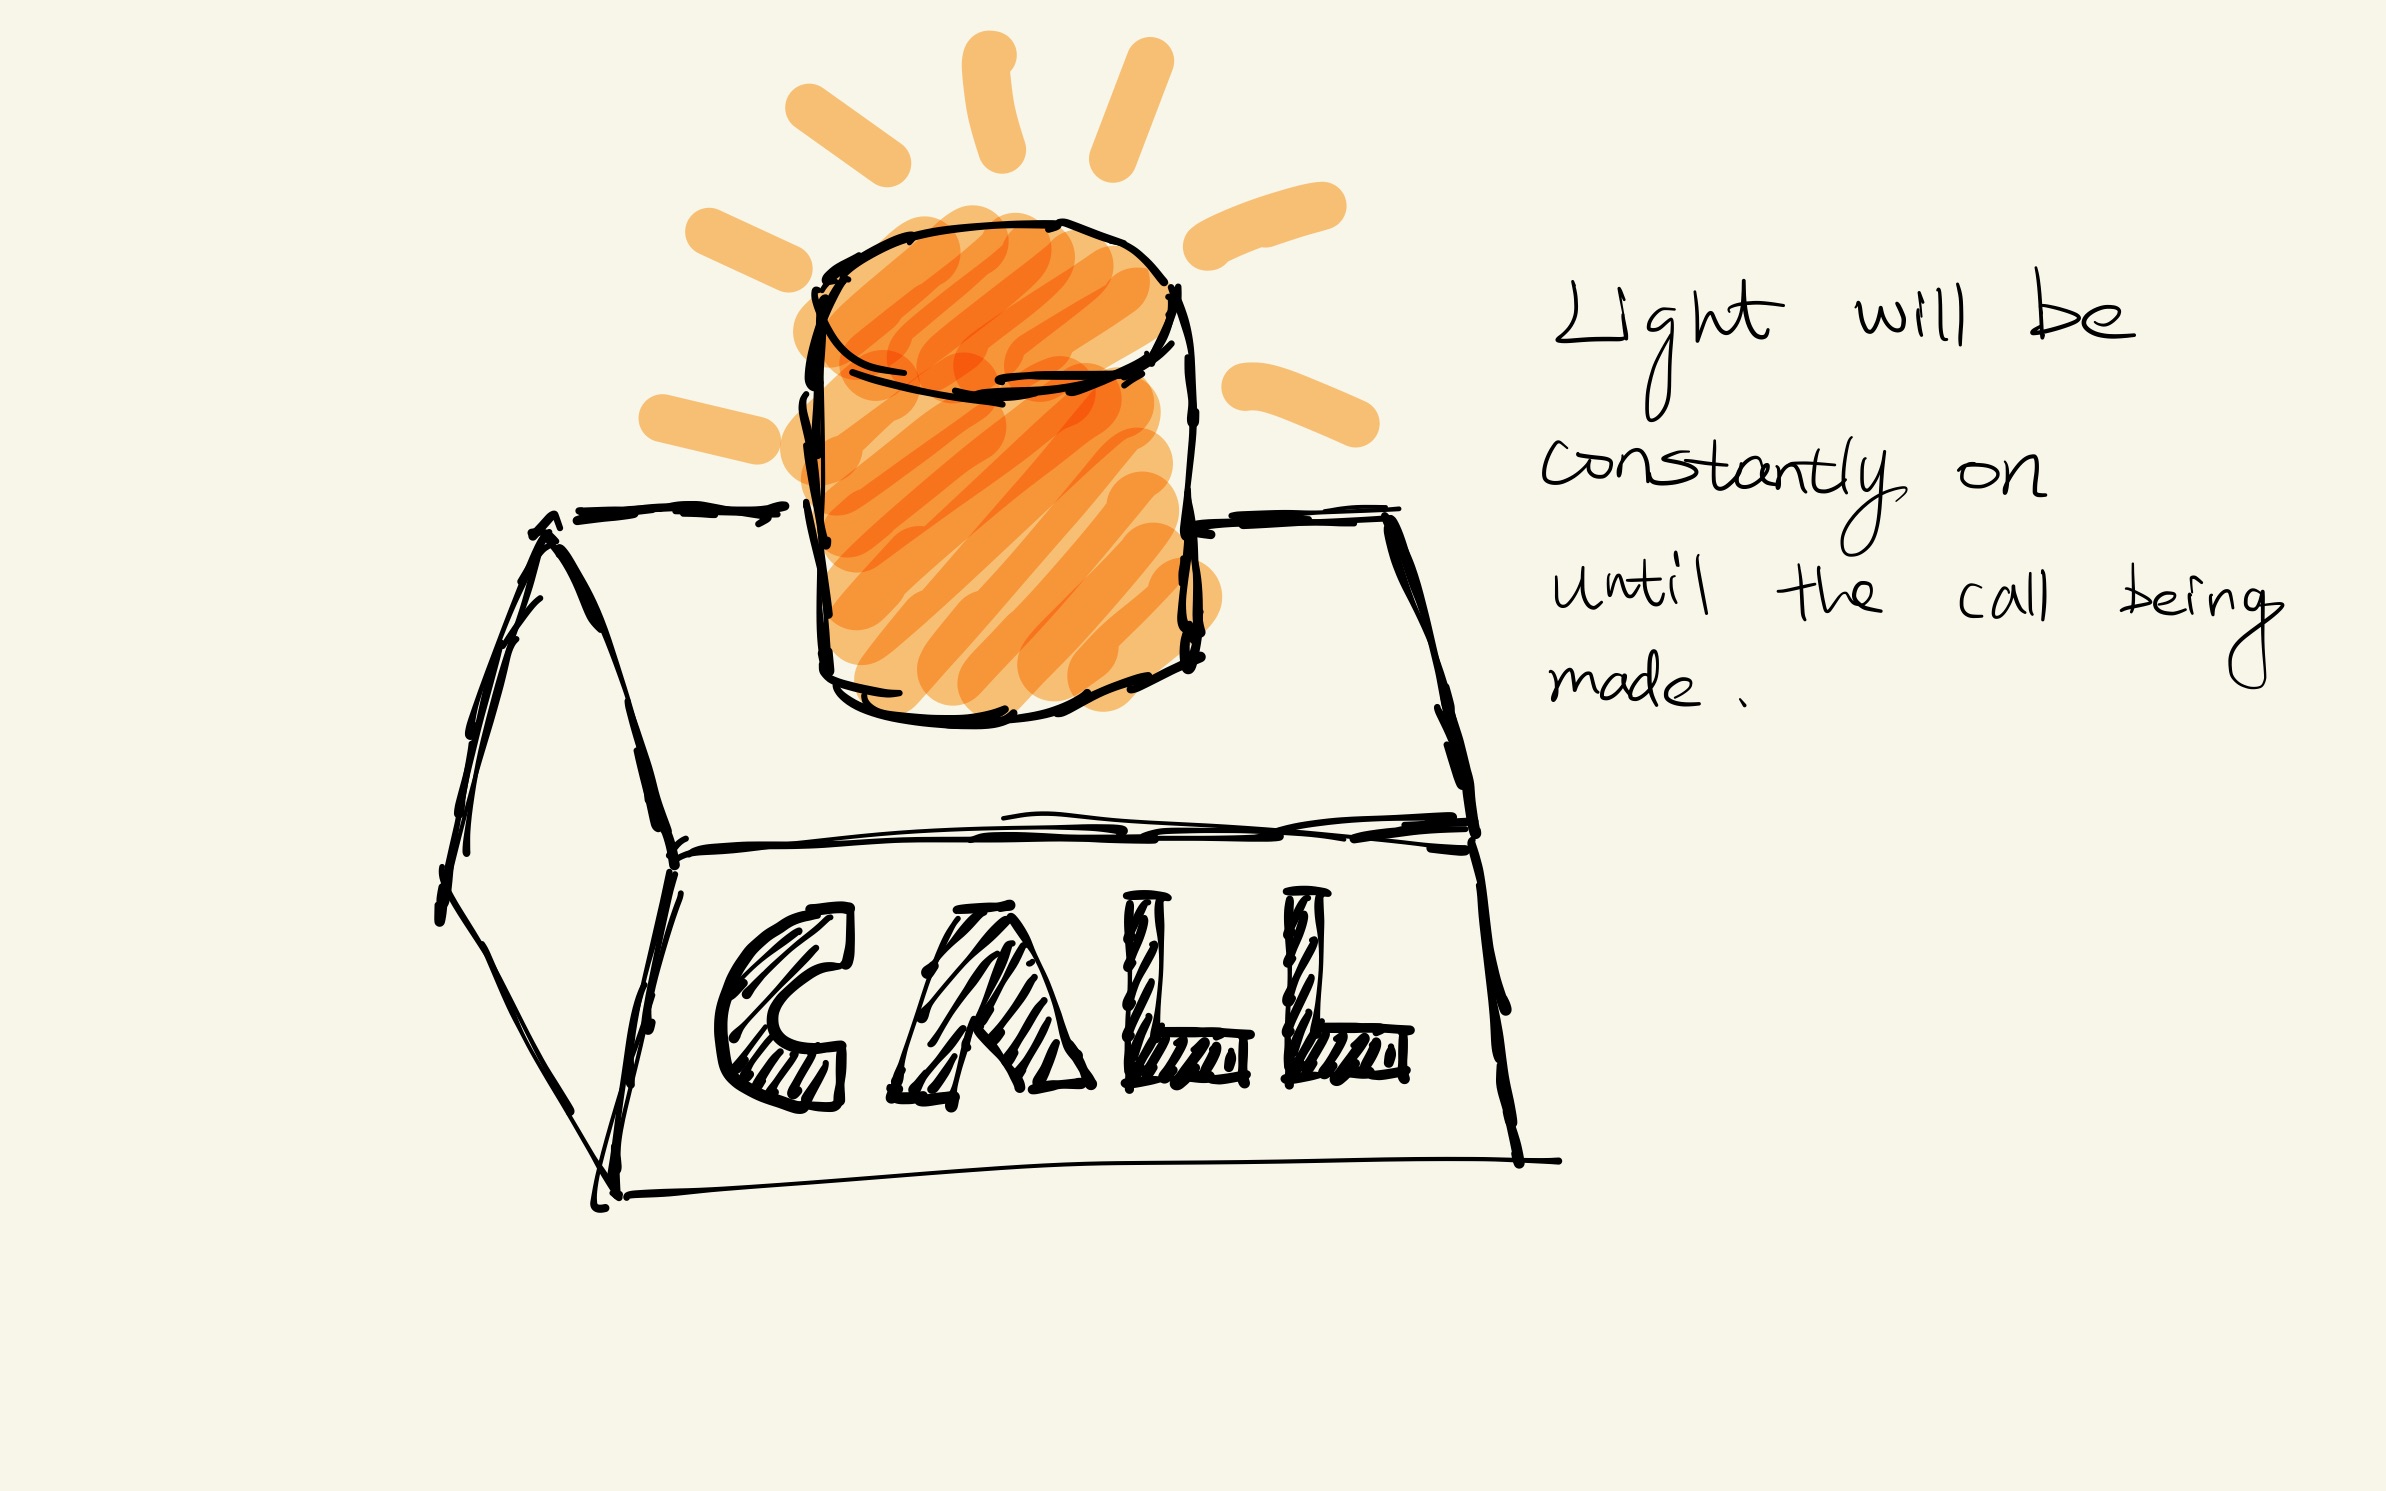 Light will be
constantly on
until the call being
made.
CALL